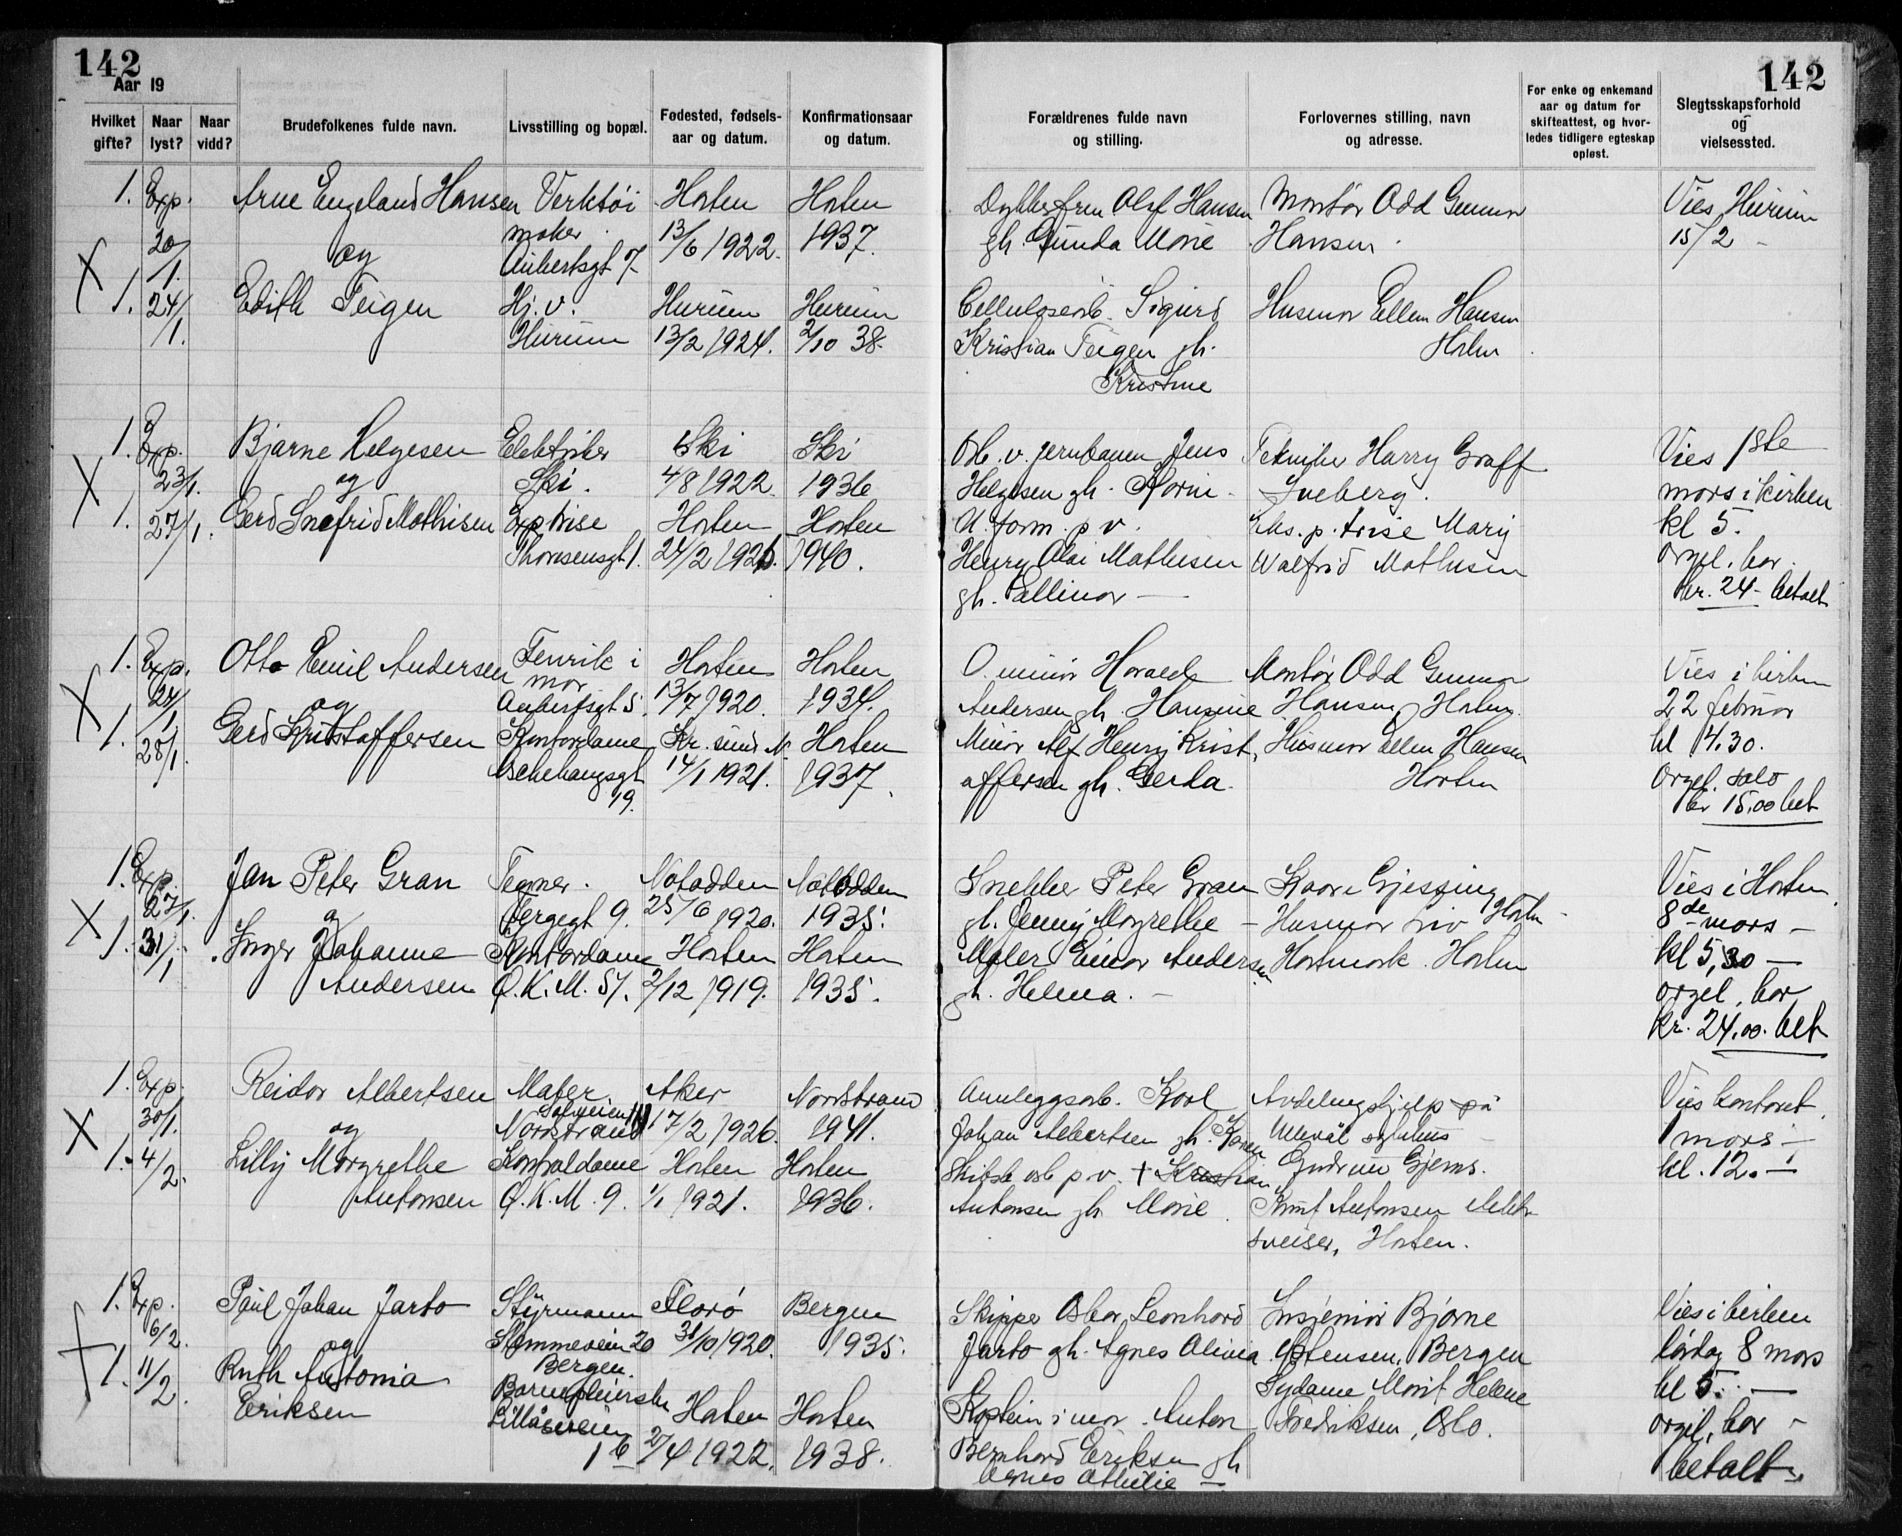 142
Aar 19
Hvilket gifte?
Naar lyst?
Naar vidd?
Brudefolkenes fulde navn.
Livsstilling og bopæl.
Fødested, fødsels-
aar og datum.
Konfirmationsaar
og datum.
1. Exp. Arne Engeland Hansen Verktøi Horten Horten
20/1. og maker. 13/6 1922. 1937.
Aubertsgt 7
1. 24/1. Edith Teigen Hj. v. Hurum Hurum
Hurum 13/2 1924. 2/10 38.
1. Exp. Bjarne Helgesen Elektriker Ski Ski
23/1. og Ski. 4/8 1922. 1936
1. 27/1. Gerd Snefrid Mathisen Exptrise Horten Horten
Thorsensgt 1. 24/2 1926. 1940.
1. Exp. Otto Emil Andersen Fenrik i Horten Horten
24/1 og mar 13/7 1920. 1934.
Aubertsgt 5.
1. 28/1. Gerd Kristoffersen Kontordame Kr. sund N. Horten
Aschehougsgt 14/1 1921. 1937.
19.
1. Exp. Jan Peter Gran Tegner. Notodden Notodden
27/1. og 9. 25/6 1920. 1935.
1. 31/1. Inger Johanne Kontordame Horten Horten
Andersen Q. K. M. 57. 2/12 1919. 1935.
1. Exp. Reidar Albertsen Maler Aker Nordstrand
30/1. og Nordstrand 17/2 1926. 1941.
1. 4/2. Lilly Margrethe Horten Horten
Antonsen Q. K. M. 9. 1/1 1921. 1936.
1. Exp. Paul Johan Jarto Styrmann Florø Bergen
6/2. og 20 31/10 1920. 1935.
Bergen.
1. 11/2. Ruth Antonia
Eriksen Horten Horten
16 27/4 1922. 1938.
142
Forældrenes fulde navn
og stilling.
Forlovernes stilling, navn
og adresse.
For enke og enkemand
aar og datum for
skifteattest, og hvor-
ledes tidligere egteskap
opløst.
Slegtsskapsforhold
og
vielsessted.
Olaf Hansen Montør Odd Gunnar Vies Hurum
gh. Gunda Marie Hansen. 15/2 -
Cellulosearb. Sigurd Husmor Ellen Hansen
Kristian Teigen gh. Horten
Kristine
Arb. v. jernbanen Jens Tekniker Harry Graff Vies 1ste
Helgesen gh. Karin - Sveberg. mars i kirken
U. form. p v. Eks. p. trise Mary kl 5.
Henry Olai Mathisen Walfrid Mathisen orgel, har
gh. Ellinor - kr. 24- betalt
U. minør Harald Montør Odd Gunnar Vies i kirken
Andersen gh. Hansine Hansen, Horten. 22 februar
Minør Alf Henry Krist, Husmor Ellen Hansen kl 4,30.
offersen gh. Gerda. Horten Orgel, solo
kr 15,00 bet
Snekker Peter Gran Kaare Gjessing Horten Vies i Horten
gh. Jenny Margrethe - Husmor Liv 8de mars -
Maler Einar Andersen Hortmark. Horten kl 5,30 -
gh. Helena. - orgel, har
kr. 24,00. bet
Anleggsarb. Karl Avdelingshjelp på Vies kontoret.
Johan Albertsen gh. Karen Ullevål sykehus - 1 mars -
arb p.v. + Kristian Gudrun Gjerns. kl. 12. -
Antonsen gh Marie. Knut Antonsen
sveiser, Horten.
Skipper Oskar Leonhard Insjeniør Bjarne Vies i kirken
Jarto gh. Agnes Olivia Bergen lørdag 8 mars
Sydame Marit Helene kl 5. -
Kaptein i mar. Anton Fredriksen, Oslo. orgel, har -
Bernhard Eriksen gh betalt -
Agnes Othilie -